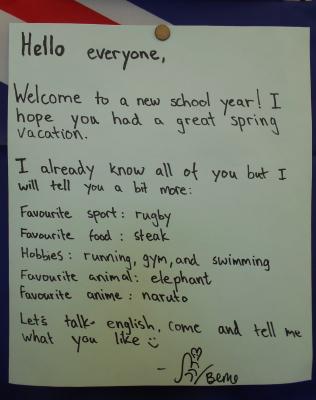 Hello everyone,
Welcome to a new school year! I
hope you had a great spring
vacation.
I already know all of you but I
will tell you a bit more:
Favourite sport: rugby
Favourite food: steak
Hobbies: running, gym, and swimming
Favourite animal: elephant
Favourite anime: naruto
Let's talk english, come and tell me
what you like